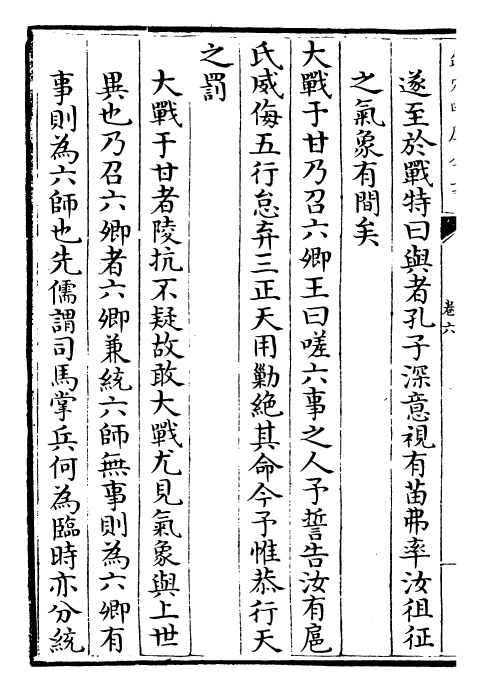 遂至於戰特曰與者孔子深意視有苗弗率汝徂征
之氣象有間矣
大戰于甘乃召六卿王曰嗟六事之人予誓告汝有扈
氏威侮五行怠弃三正天用勦絶其命今予惟恭行天
之罰
大戰于甘者陵抗不疑故敢大戰尤見氣象與上世
異也乃召六卿者六卿兼統六師無事則為六卿有
事則為六師也先儒謂司馬掌兵何為臨時亦分統
卷六